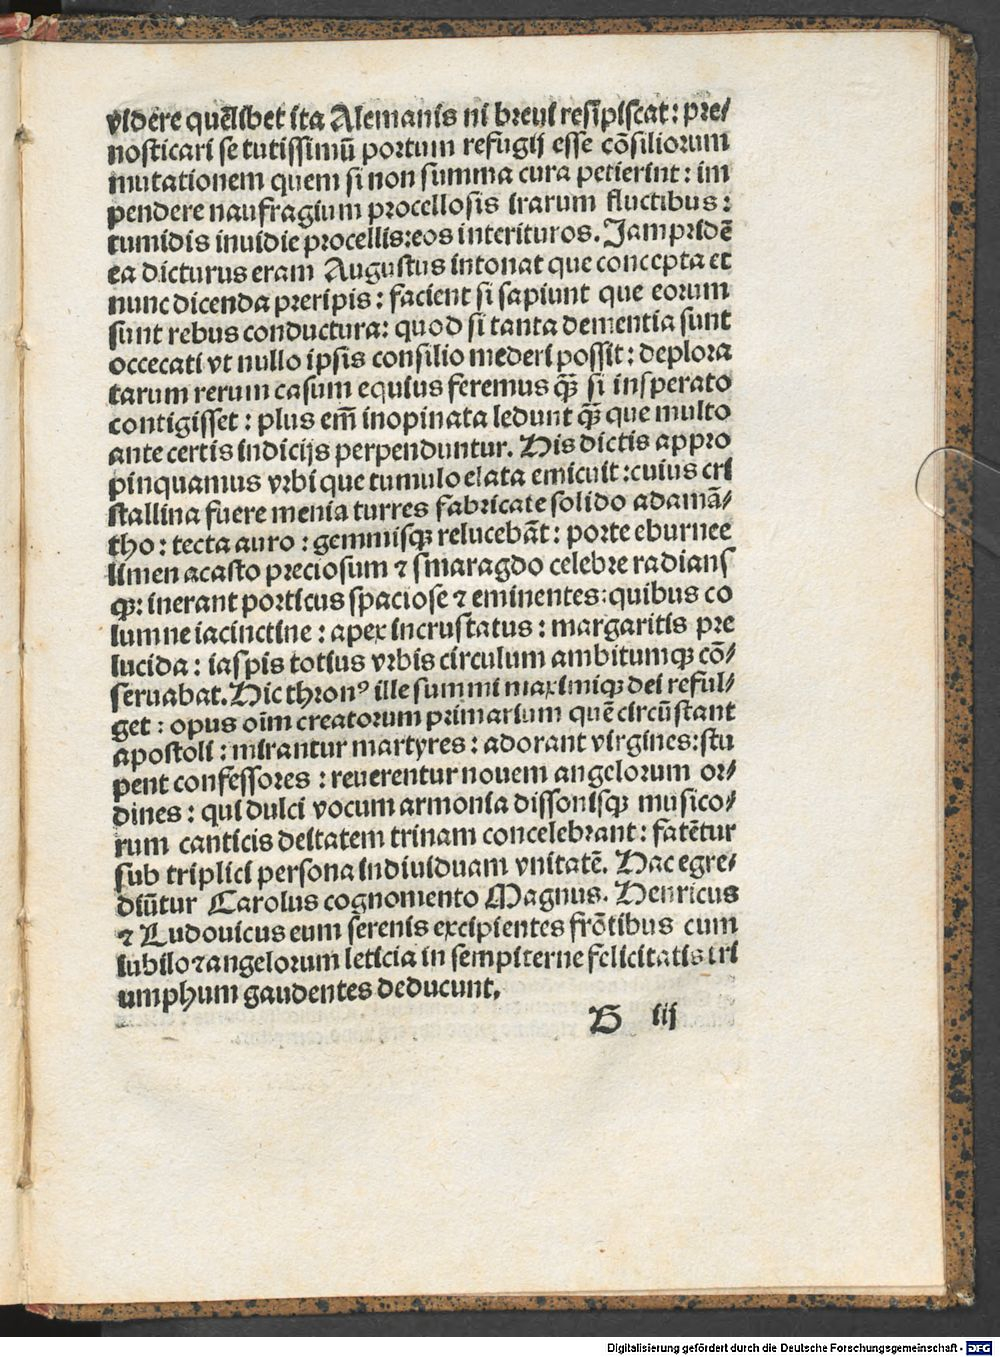 videre quēlibet ita Alemanis ni breui resipiscat: pre⸗
nosticari se tutissimū portum refugij esse cōsiliorum
mutationem quem si non summa cura petierint: im
pendere naufragium procellosis irarum fluctibus:
tumidis inuidie procellis: eos interituros. Jampridē
ea dicturus eram Augustus intonat que concepta et
nunc dicenda preripis: facient si sapiunt que eorum
sunt rebus conductura: quod si tanta dementia sunt
occecati vt nullo ipsis consilio mederi possit: deplora
tarum rerum casum equius feremus qꝫ̄ si insperato
contigisset: plus em̄ inopinata ledunt qꝫ̄ que multo
ante certis indicijs perpenduntur. His dictis appro
pinquamus vrbi que tumulo elata emicuit: cuius cri
stallina fuere menia turres fabricate solido adamā⸗
tho: tecta auro: gemmisqꝫ relucebāt: porte eburnee
limen acasto preciosum ⁊ smaragdo celebre radians
qꝫ: inerant porticus spaciose ⁊ eminentes: quibus co
lumne iacinctine: apex incrustatus: margaritis pre
lucida: iaspis totius vrbis circulum ambitumqꝫ cō⸗
seruabat. Hic thronꝰ ille summi maximiqꝫ dei reful⸗
get: opus oīm creatorum primarium quē circūstant
apostoli: mirantur martyres: adorant virgines: stu
pent confessores: reuerentur nouem angelorum or⸗
dines: qui dulci vocum armonia dissonisqꝫ musico⸗
rum canticis deitatem trinam concelebrant: fatētur
sub triplici persona indiuiduam vnitatē. Hac egre⸗
diūtur Carolus cognomento Magnus. Henricus
⁊ Ludouicus eum serenis excipientes frōtibus cum
iubilo ⁊ angelorum leticia in sempiterne felicitatis tri
umphum gaudentes deducunt.
B iij
Digitalisierung gefördert durch die Deutsche Forschungsgemeinschaft - DFG